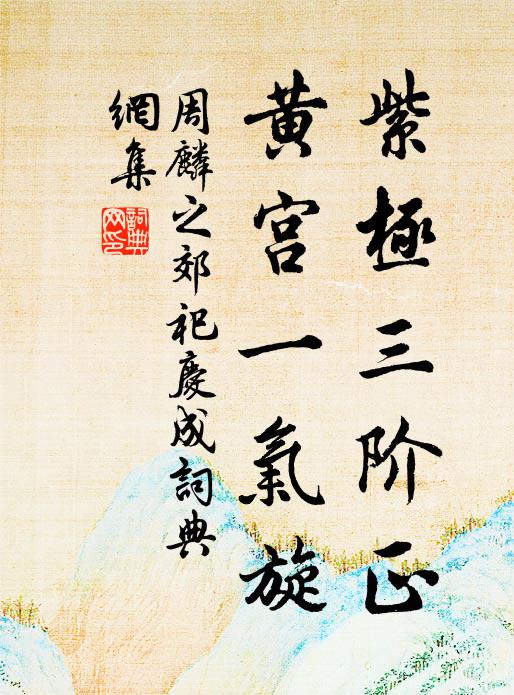 紫極三阶正
黄宫一氣旋
周麟之郊祀慶成詞典
網集
詞典网印